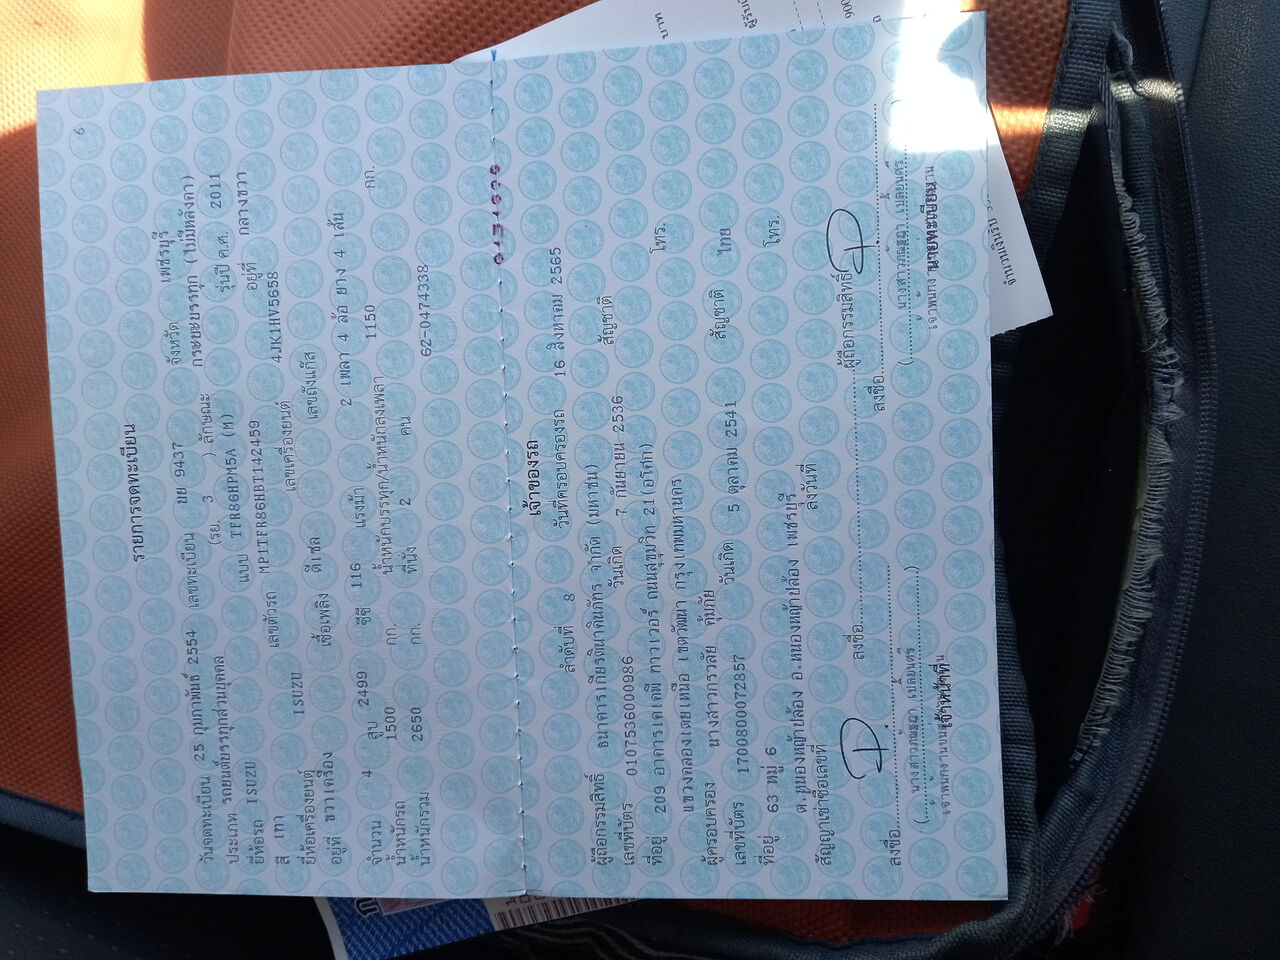 6
รายการจดทะเบียน
วันจดทะเบียน 25 กุมภาพันธ์ 2554 เลขทะเบียน บย 9437 จังหวัด เพชรบุรี
ประเภท รถยนต์บรรทุกส่วนบุคคล (รย. 3 ) ลักษณะ กระบะบรรทุก (ไม่มีหลังคา)
ยี่ห้อรถ ISUZU แบบ TFR86HPM5A (M) รุ่นปี ค.ศ. 2011
สี เทา เลขตัวรถ MP1TFR86HBT142459 อยู่ที่ กลางขวา
ยี่ห้อเครื่องยนต์ ISUZU เลขเครื่องยนต์ 4JK1HV5658
อยู่ที่ ขวาเครื่อง เชื้อเพลิง ดีเซล เลขถังแก๊ส
จำนวน 4 สูบ 2499 ซีซี 116 แรงม้า 2 เพลา 4 ล้อ ยาง 4 เส้น
น้ำหนักรถ 1500 กก. น้ำหนักบรรทุก/น้ำหนักลงเพลา 1150 กก.
น้ำหนักรวม 2650 กก. ที่นั่ง 2 คน
62-0474338
เจ้าของรถ
ลำดับที่ 8 วันที่ครอบครองรถ 16 สิงหาคม 2565
ผู้ถือกรรมสิทธิ์ ธนาคารเกียรตินาคินภัทร จำกัด (มหาชน)
เลขที่บัตร 0107536000986 วันเกิด 7 กันยายน 2536 สัญชาติ
ที่อยู่ 209 อาคารเคเคพี ทาวเวอร์ ถนนสุขุมวิท 21(อโศก)
แขวงคลองเตยเหนือ เขตวัฒนา กรุงเทพมหานคร โทร.
ผู้ครอบครอง นางสาวกรวลัย คุ้มภัย
เลขที่บัตร 1700800072857 วันเกิด 5 ตุลาคม 2541 สัญชาติ ไทย
ที่อยู่ 63 หมู่ 6
ต.หนองหญ้าปล้อง อ.หนองหญ้าปล้อง เพชรบุรี โทร.
สัญญาเช่าซื้อเลขที่ ลงวันที่
ลงชื่อ ผู้ถือกรรมสิทธิ์
ลงชื่อ ลงชื่อ
เจ้าหน้าที่ นายทะเบียน
บาท